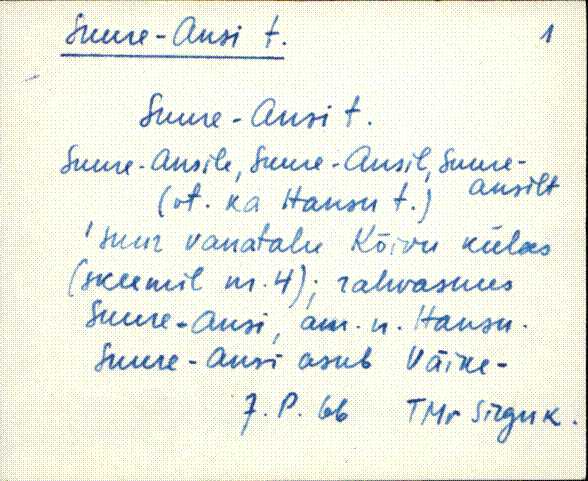 Suure-Ansi t. 1
Suure-Ansi t.
Suure-Ansile, Suure-Ansil, Suure-
ansilt
(vt. ka Hansu t.)
'suur vanatalu Kõivu külas
(skeemil nr. 4); rahvasuus
Suure-Ansi, am. n. Hansu.
Suure-Ansi asub Väike-
J. P. 66 TMr Sirguk.